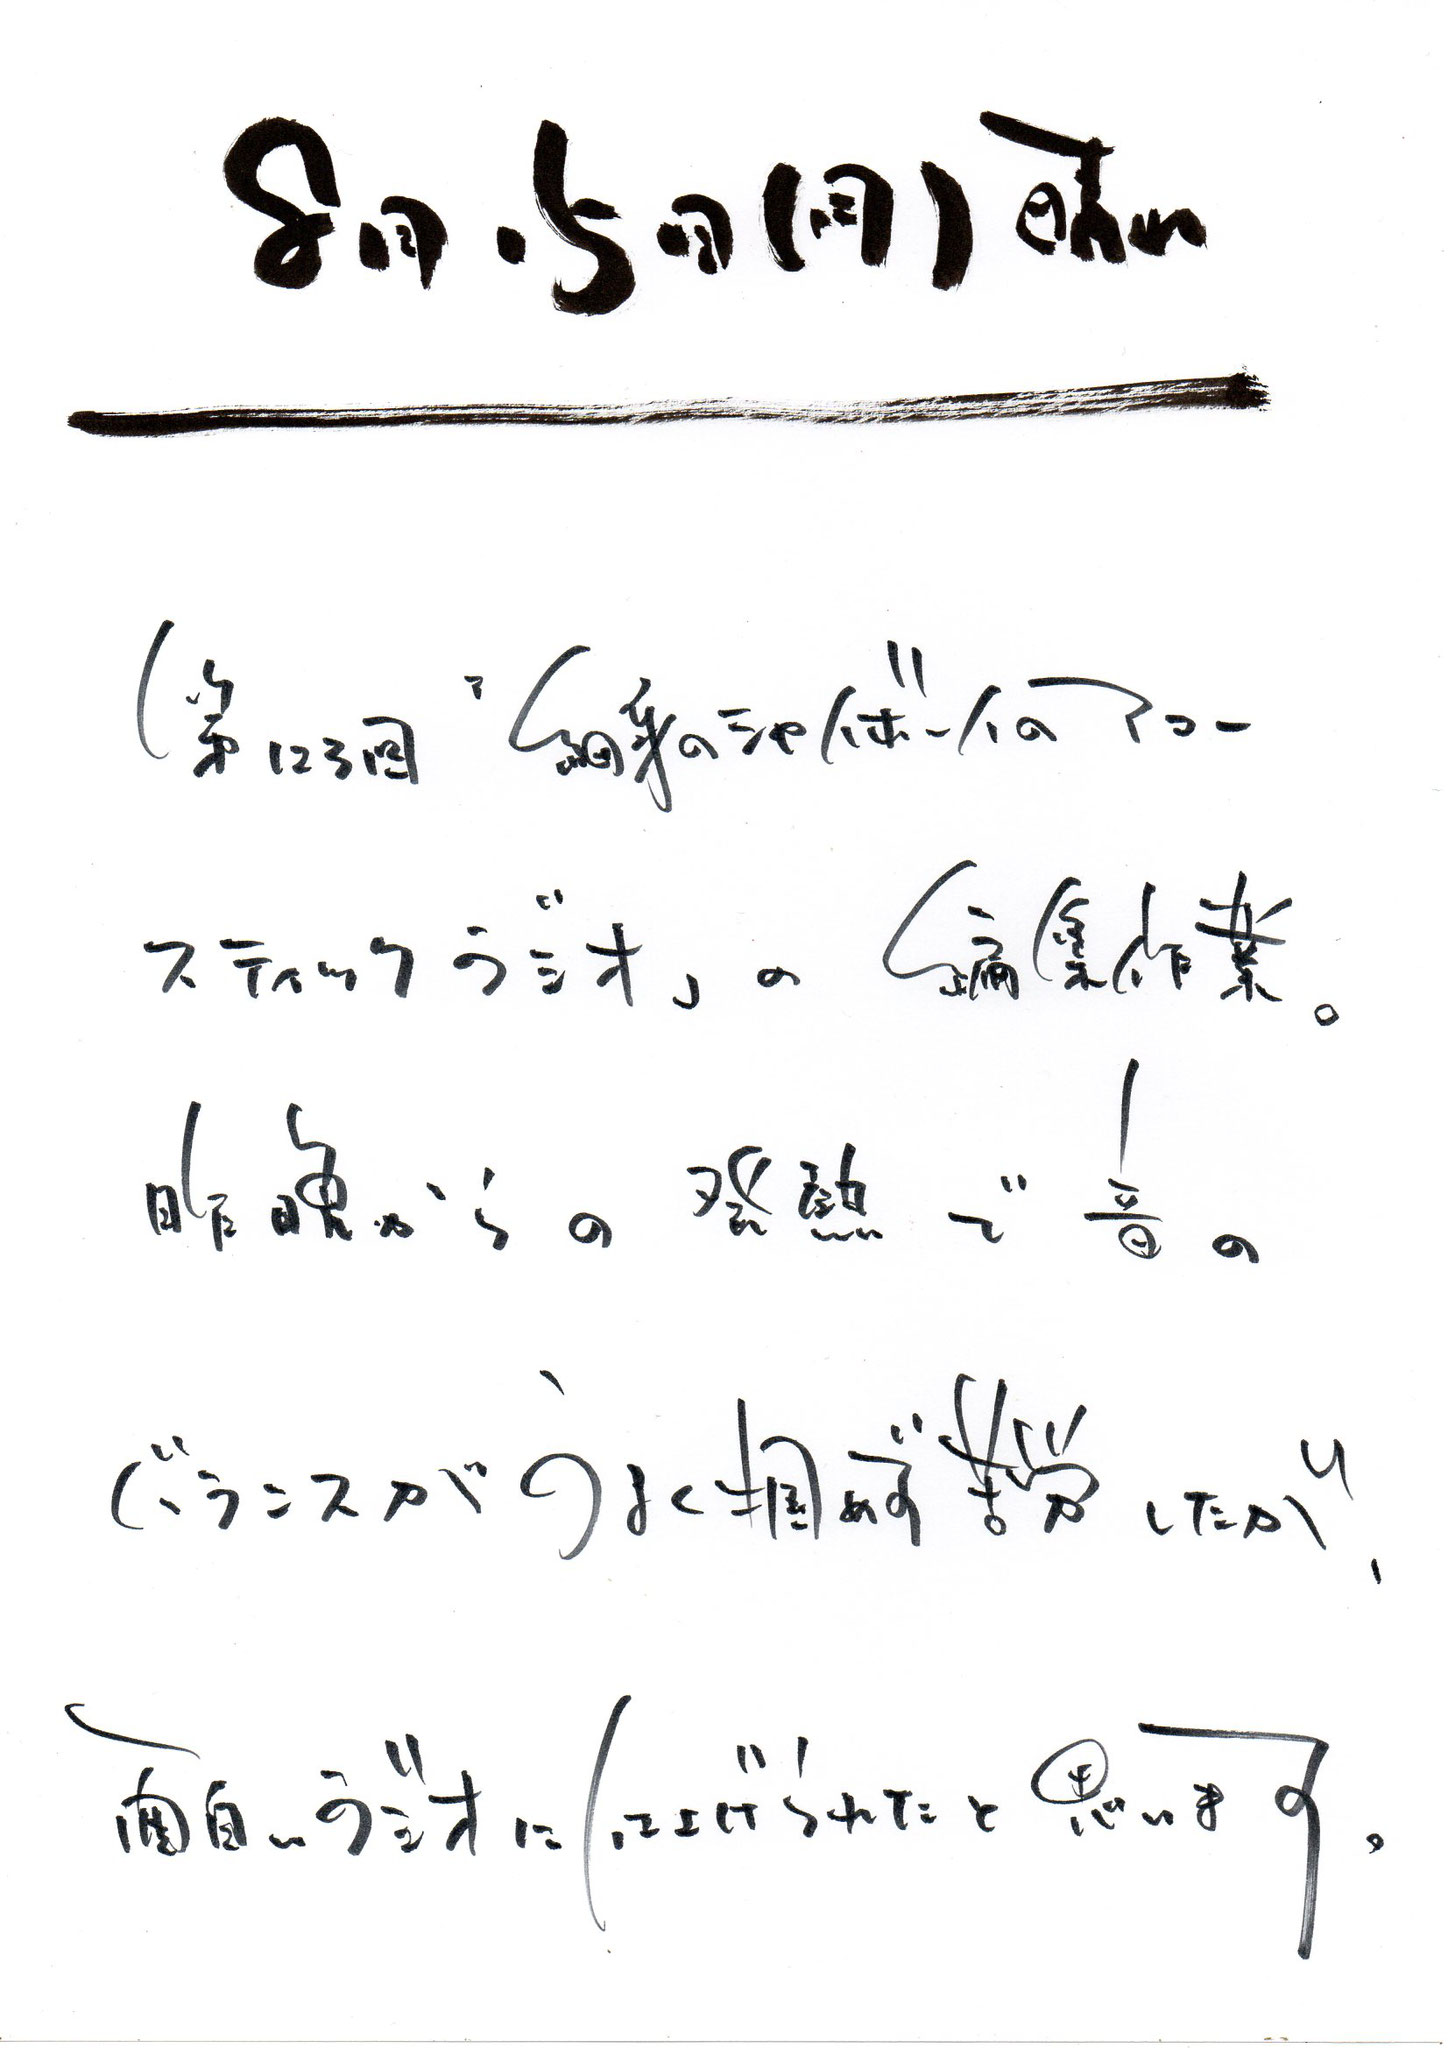 8月.5日(月)晴れ
第123回「細身のシャイボーイのアコー
スティックラジオ」の編集作業。
昨晩からの発熱で音の
バランスがうまく掴めず苦労したが、
面白いラジオに仕上げられたと思います。